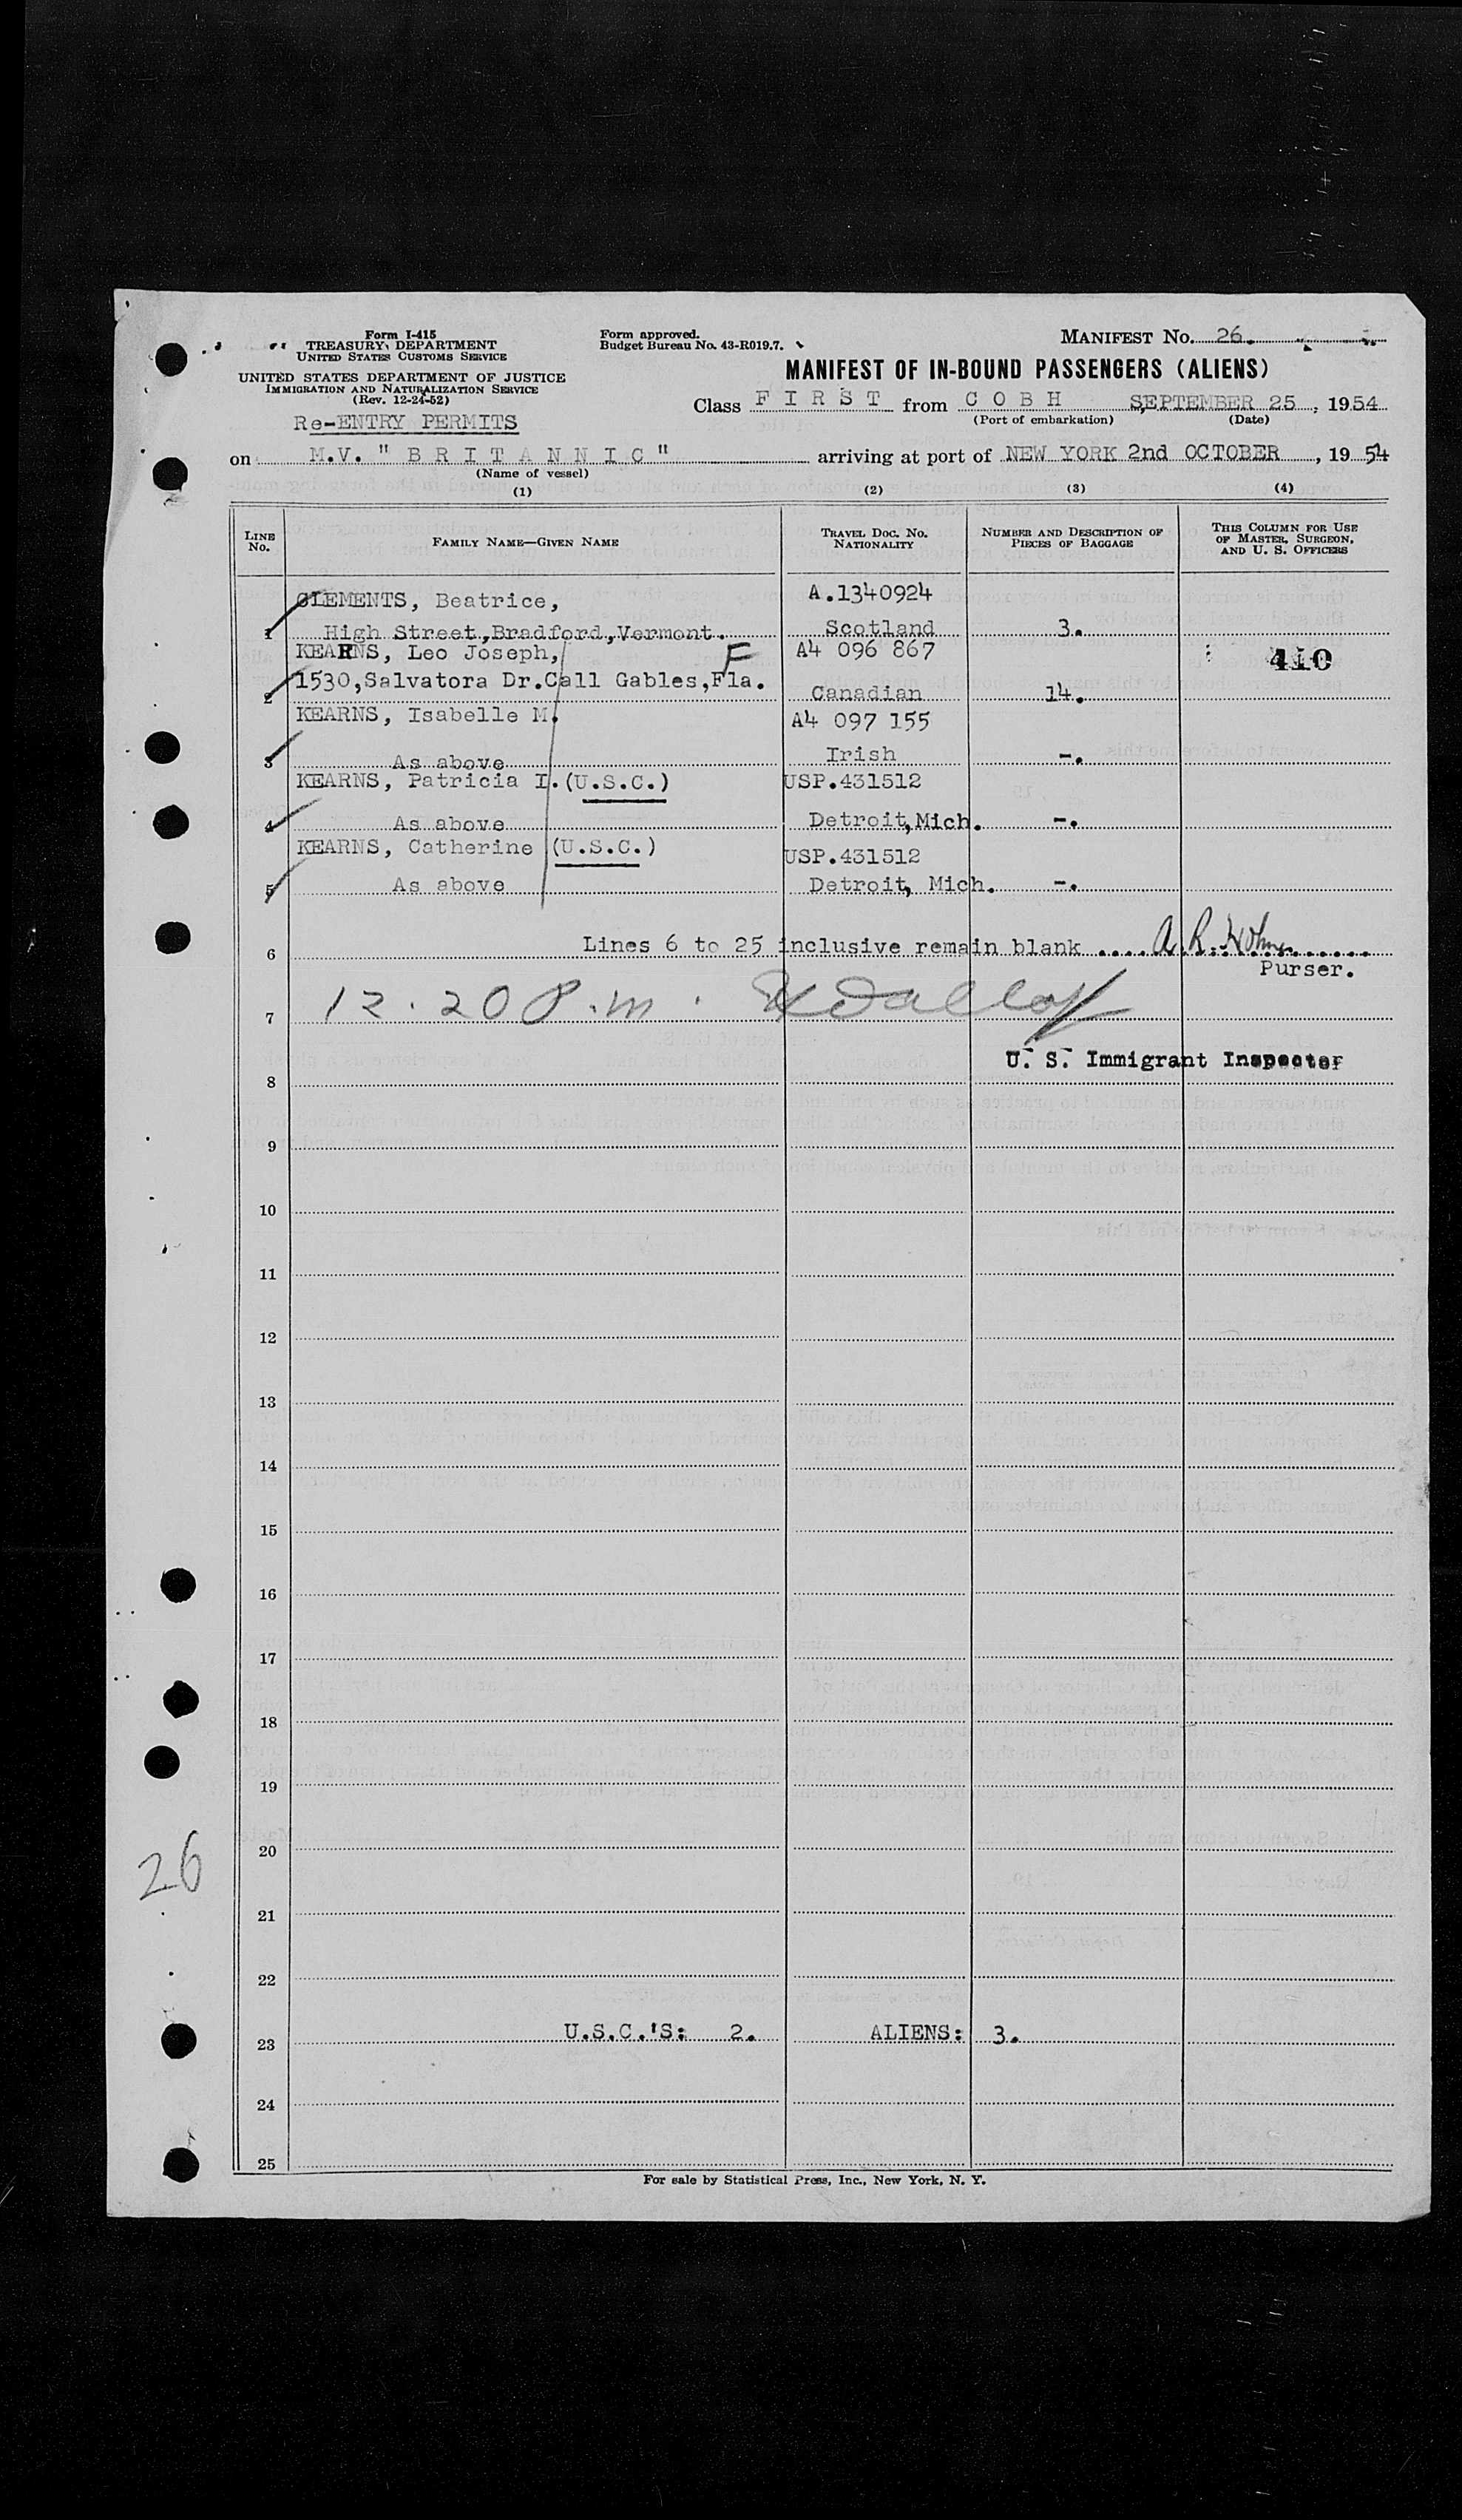 Form I-415
TREASURY DEPARTMENT
UNITED STATES CUSTOMS SERVICE
UNITED STATES DEPARTMENT OF JUSTICE
IMMIGRATION AND NATURALIZATION SERVICE
(Rev. 12-24-52)
Re-ENTRY PERMITS
Form approved.
Budget Bureau No. 43-R019.7.
MANIFEST No. 26.
MANIFEST OF IN-BOUND PASSENGERS (ALIENS)
Class F I R S T from C O B H SEPTEMBER 25, 1954
(Port of embarkation) (Date)
on M.V. " B R I T A N N I C " arriving at port of NEW YORK 2nd OCTOBER, 1954
(Name of vessel)
(1) (2) (3) (4)
LINE No. FAMILY NAME—GIVEN NAME TRAVEL DOC. NO. NATIONALITY NUMBER AND DESCRIPTION OF PIECES OF BAGGAGE THIS COLUMN FOR USE OF MASTER, SURGEON, AND U. S. OFFICERS
CLEMENTS, Beatrice, A.1340924
1 High Street,Bradford,Vermont. Scotland 3.
KEARNS, Leo Joseph, F A4 096 867 410
2 1530,Salvatora Dr.Call Gables,Fla. Canadian 14.
KEARNS, Isabelle M. A4 097 155
3 As above Irish -.
KEARNS, Patricia I.(U.S.C.) USP.431512
4 As above Detroit,Mich. -.
KEARNS, Catherine (U.S.C.) USP.431512
5 As above Detroit, Mich. -.
6 Lines 6 to 25 inclusive remain blank .... A. R.
Purser.
7 12.20 P.m.
U. S. Immigrant Inspector
8
9
10
11
12
13
14
15
16
17
18
19
26
20
21
22
23 U.S.C.'S: 2. ALIENS: 3.
24
25
For sale by Statistical Press, Inc., New York, N. Y.